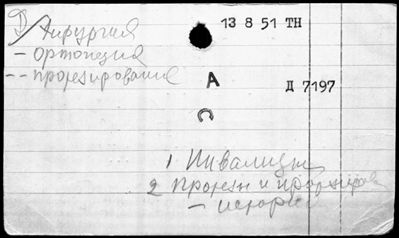 Д/Хирургия
13 8 51 ТН
— Ортопедия
-- протезирование
А
Д 7197
С
1 Инвалиды
2 Протезы и протезиров
— история